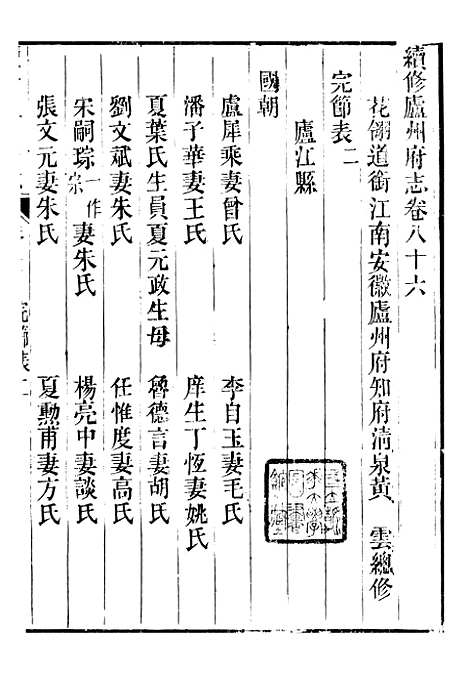 續修廬州府志卷八十六
花翎道銜江南安徽廬州府知府清泉黃 雲總修
完節表二
廬江縣
國朝
盧犀乘妻曾氏 李自玉妻毛氏
潘子華妻王氏 庠生丁恆妻姚氏
夏葉氏生員夏元政生母 魏德言妻胡氏
劉文斌妻朱氏 任惟度妻高氏
宋嗣琮一作宗妻朱氏 楊亮中妻談氏
張文元妻朱氏 夏勲甫妻方氏
完節表二